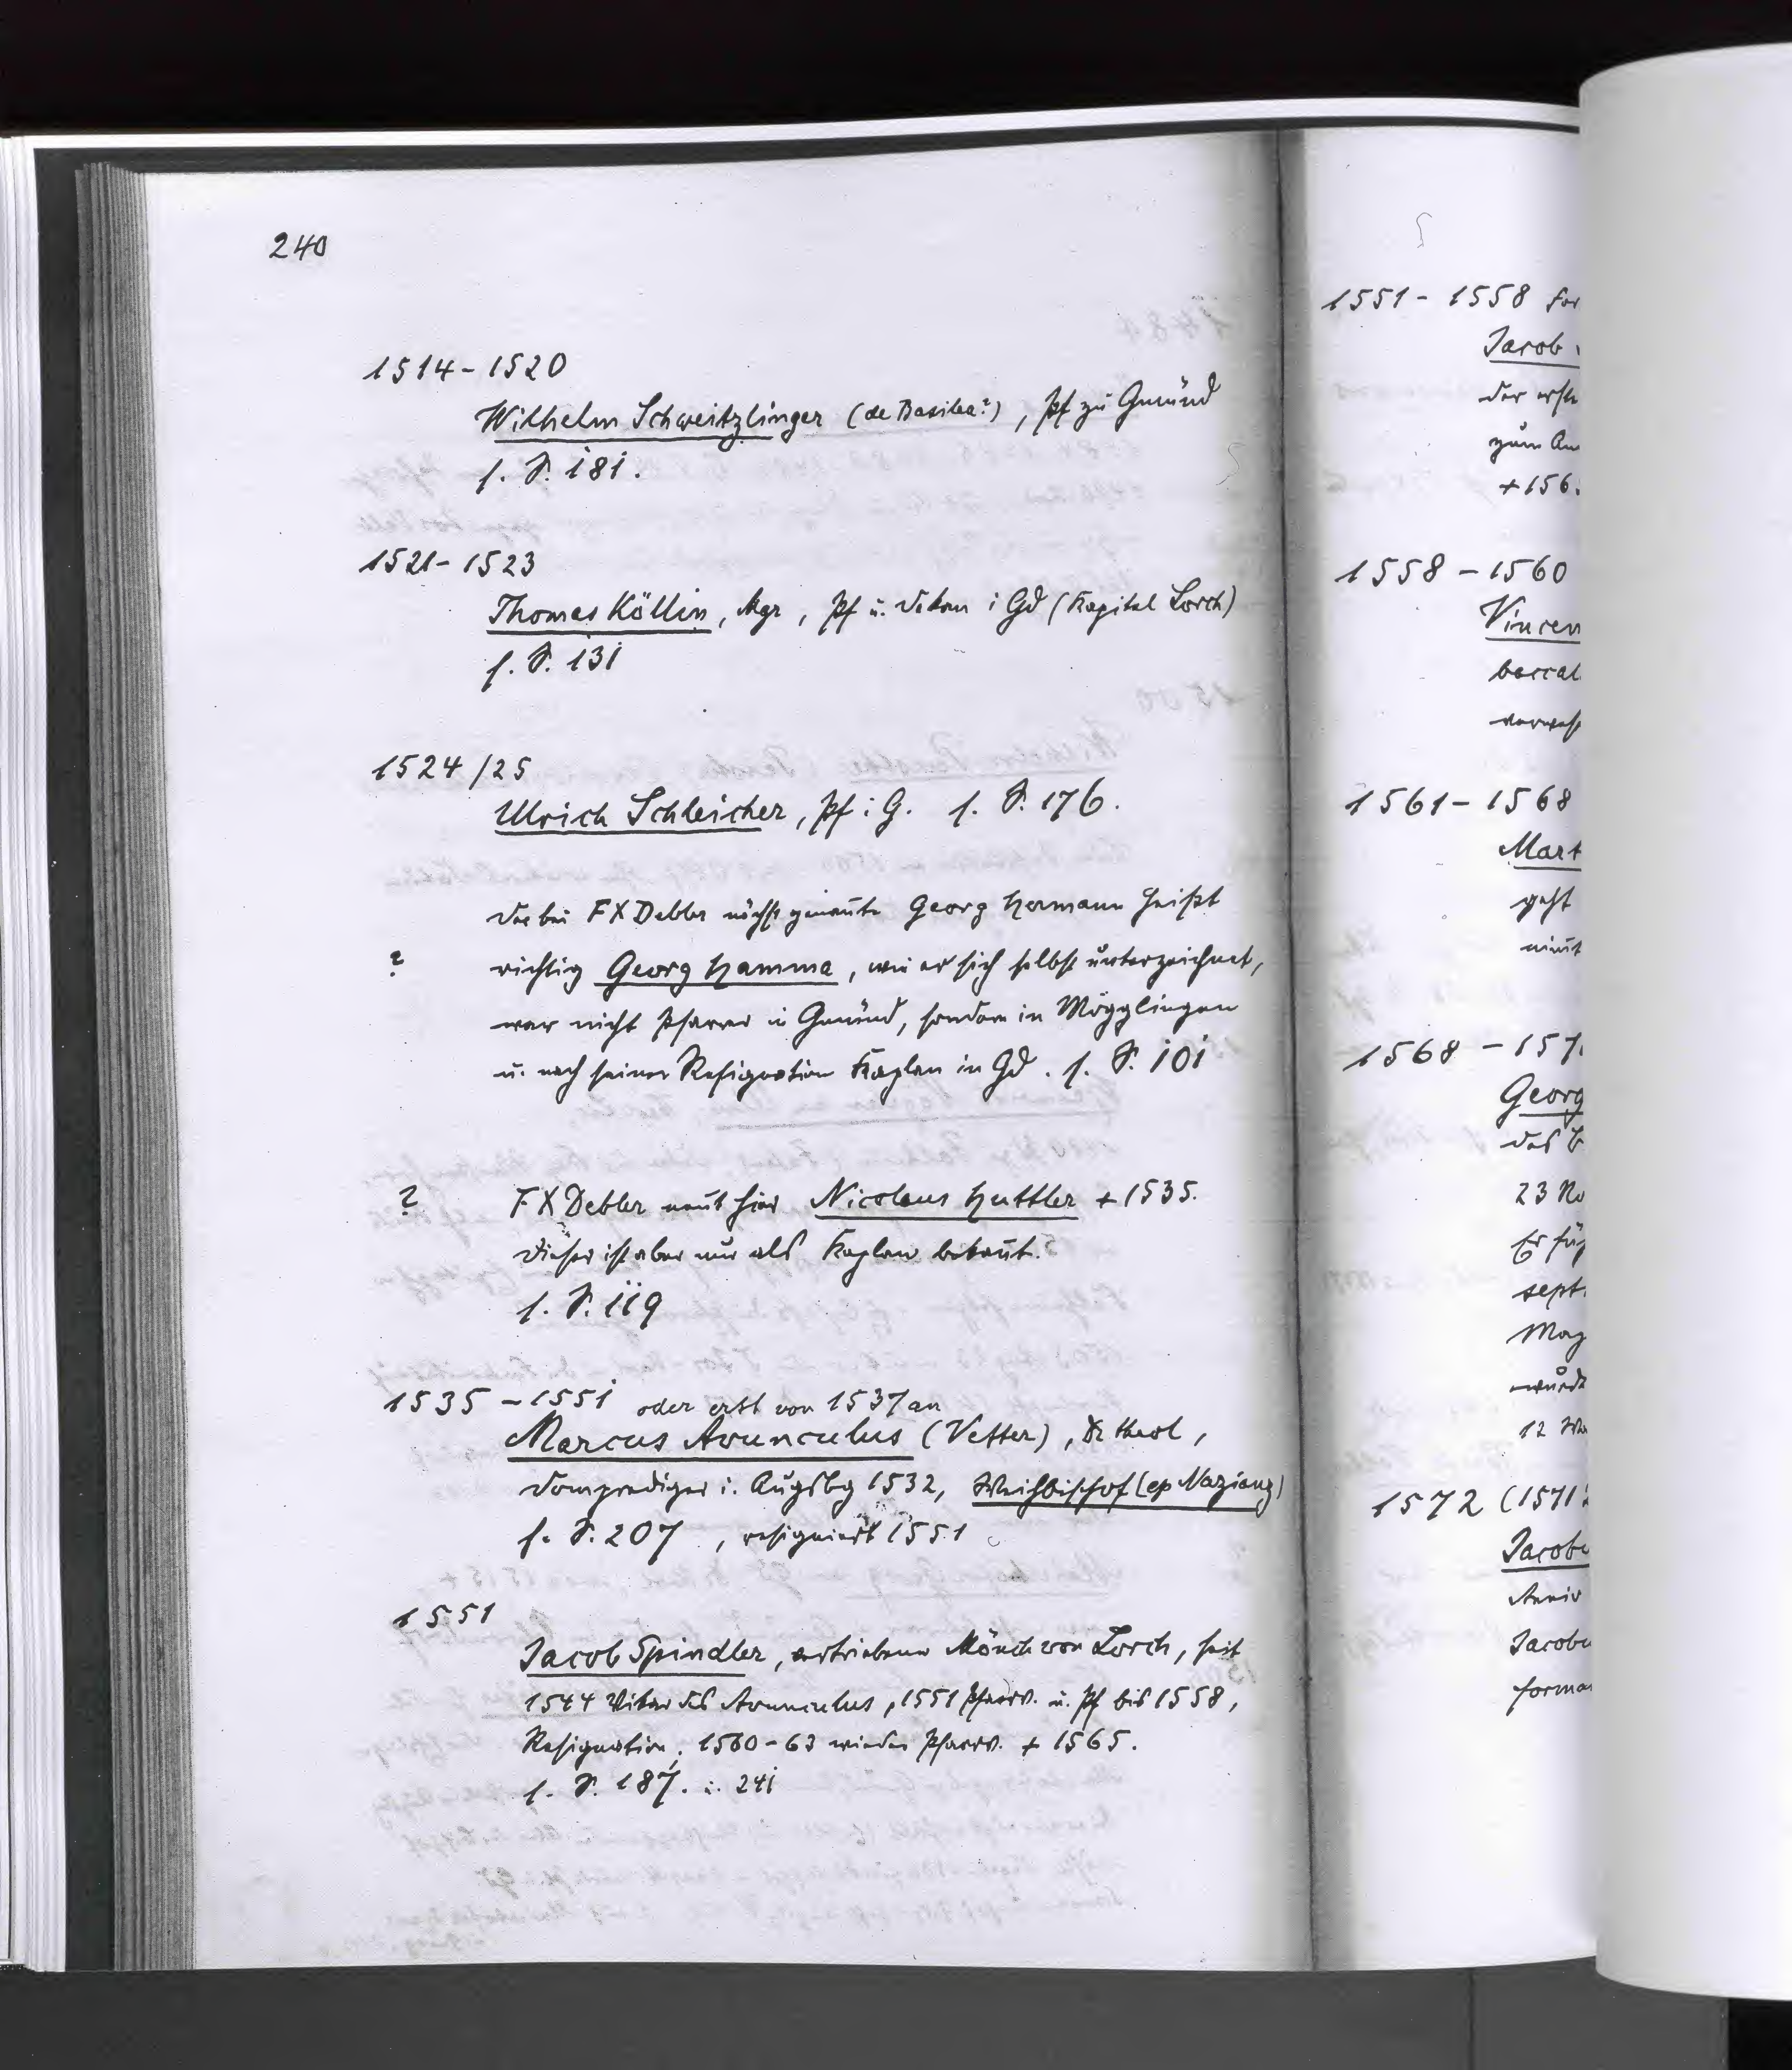 240
1514 - 1520
Wilhelm Schweitzlinger (de Basilea?), Pf zu Gmünd
s. S. 181.
1521 - 1523
Thomas Köllin, Mgr, Pf u. Dekan i Gd (Kapitel Lorch)
s. S. 131
1524/25
Ulrich Schleicher, Pf i G. s. S. 176.
Der bei FX Debler nächstgenannte Georg Hermann heißt
? richtig Georg Hamma, wie er sich selbst unterzeichnet,
war nicht Pfarrer in Gmünd, sondern in Mögglingen
u. nach seiner Resignation Kaplan in Gd. s. S. 101
? FX Debler nennt hier Nicolaus Huttler + 1535.
Dieser ist aber nur als Kaplan bekannt.
s. S. 119
1535 - 1551 oder erst von 1537 an
Marcus Avunculus (Vetter), Dr theol,
Domprediger i. Augsbg 1532, Weihbischof (ep Nazianz)
s. S. 207, resigniert 1551
1551
Jacob Spindler, vertriebener Mönch von Lorch, seit
1544 Vikar des Avunculus, 1551 Pfarrv. u. Pf bis 1558,
Resignation. 1560-63 wieder Pfarrv. + 1565.
s. S. 187. u. 241
1551 - 1558
Jacob
der erste
zum
+ 156
1558 - 1560
Vincen
baccal
verwes
1561 - 1568
Mart
geht
nimt
1568 - 157
Georg
das
23 No
Er
sept
Mag
wurde
12
1572 (1571
Jacobu
Anniv
Jacobu
forma